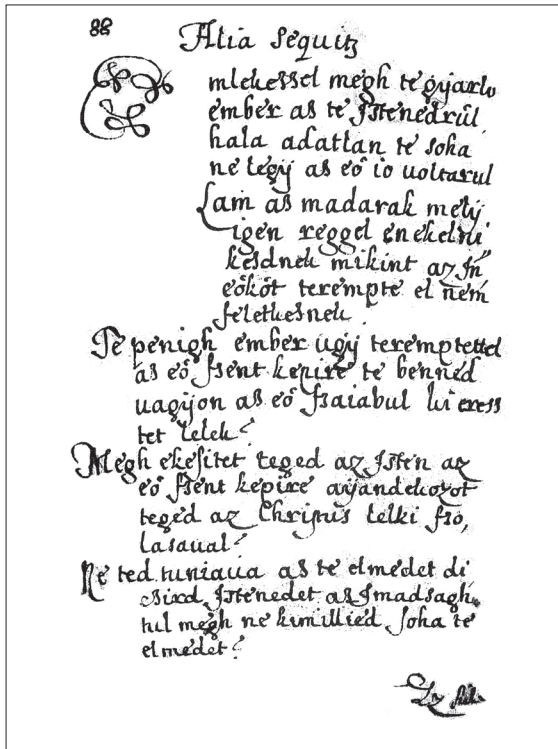 88
Alia Sequitz
Emlekessel megh te gÿarlo
ember as te Jstenedrûl
hala adatlan te soha
ne legÿ as eô io uoltarul
Lam as madarak melÿ
igen reggel enekelni
kesdnek mikint az Jn̄
eôkôt terempte el nem
feletkesnek
Te penigh ember ûgÿ teremptettel
as eô ſsent kepire te benned
uagÿon as eô ſsaiabul ki eress
tet lelek
Megh ekesitet teged az Jsten az
eô ſsent kepire aÿandekozot
teged az Chripus lelki ſso,
lasaual
Ne ted tuniaua as te elmedet di
csird Jstenedet as Jmadsagh
tul megh ne kimillied soha te
elmedet